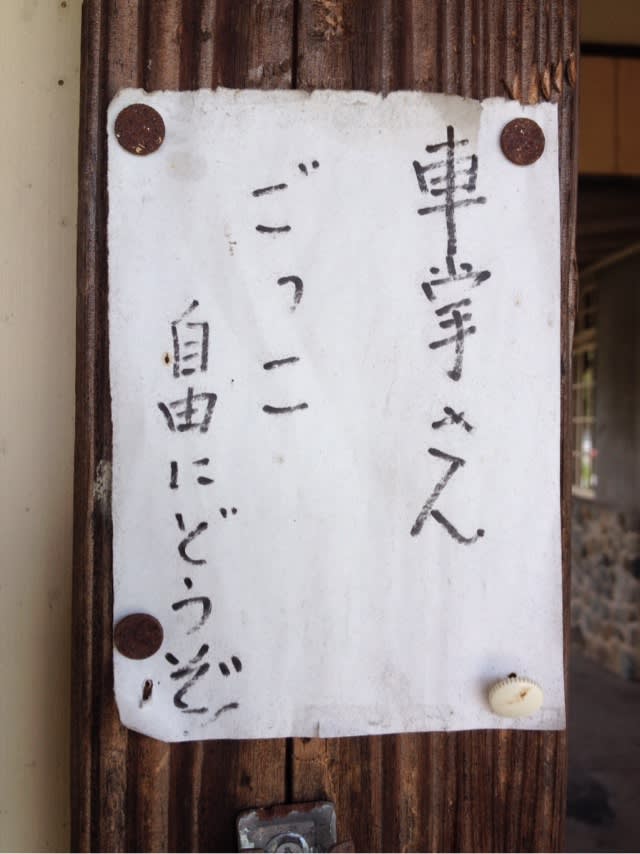 車掌さん
ごっこ
自由にどうぞ